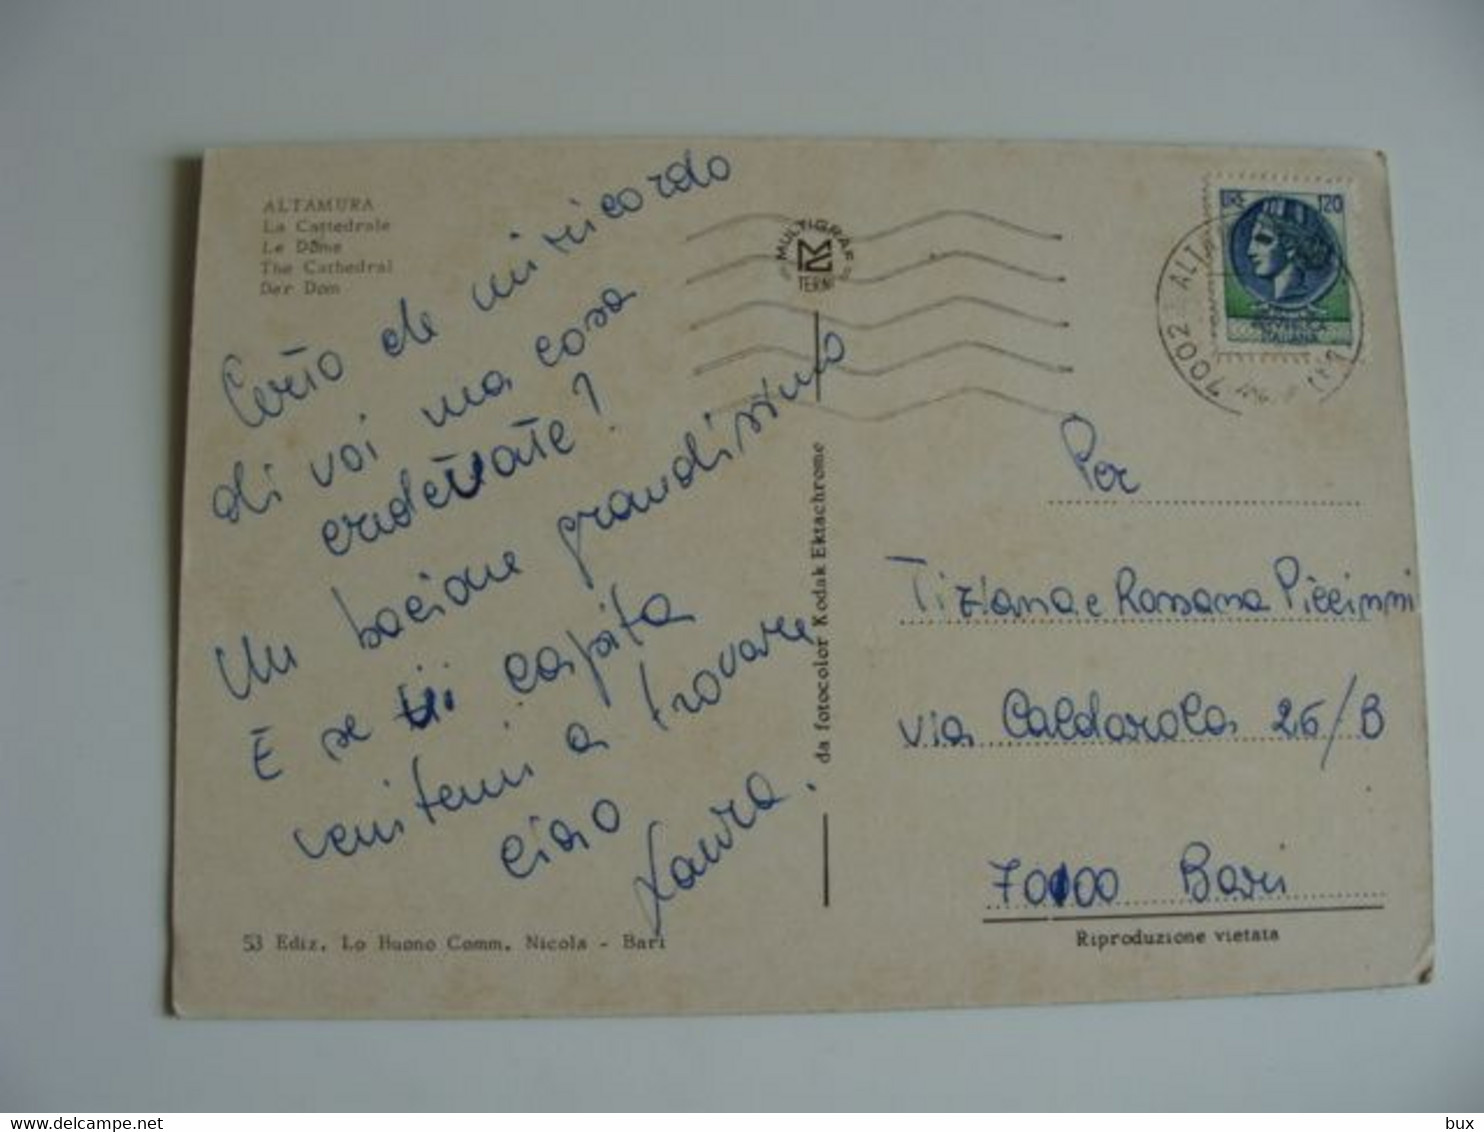 ALTAMURA
La Cattedrale
Le Dôme
The Cathedral
Der Dom
Certo che mi ricordo
di voi ma cosa
credevate?
Un bacione grandissimo
E se vi capita
venitemi a trovare
ciao
Laura.
53 Ediz. Lo Buono Comm. Nicola - Bari
MULTIGRAF
TERNI
da fotocolor Kodak Ektachrome
LIRE 120
REPUBBLICA
ITALIANA
7002 ALTA
Per
Tiziana e Rossana Piccinni
via Caldarola 26/B
70100 Bari
Riproduzione vietata
bux